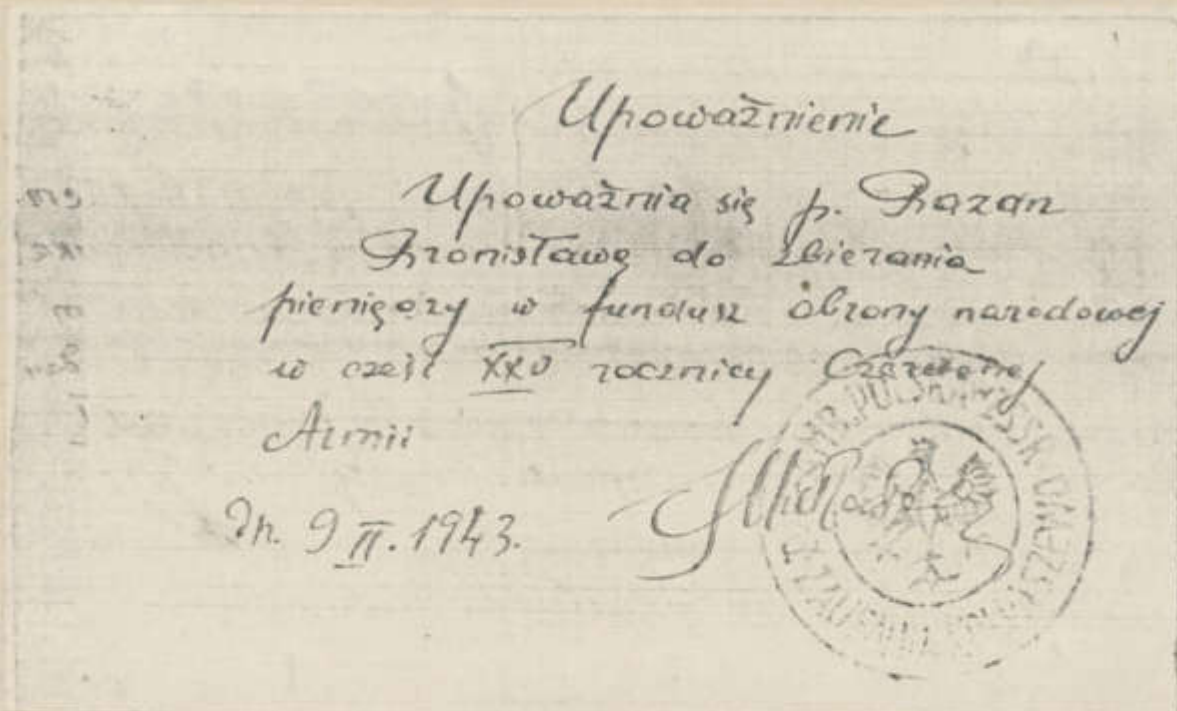 Upoważnienie
Upoważnia się p. Bazan
Bronisławę do zbierania
pieniędzy w fundusz obrony narodowej
w cześć XXV rocznicy Czerwonej
Armii
Dn. 9 II. 1943.
AMB. POLSKA ZSSR